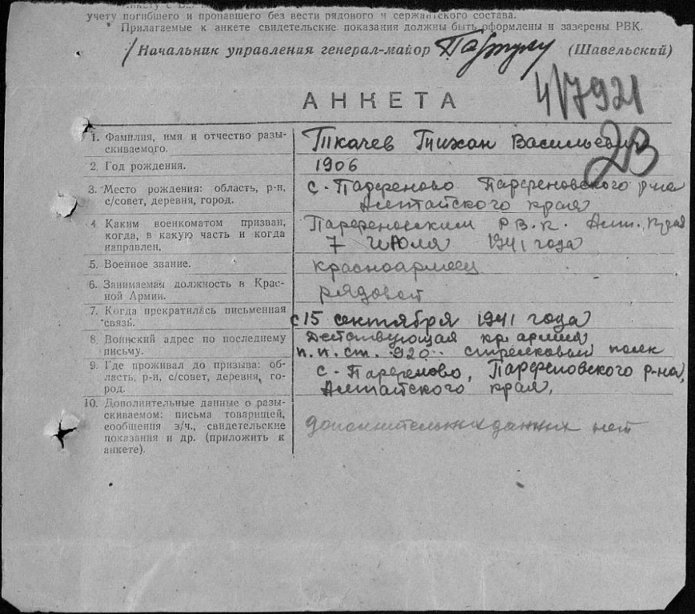 учету погибшего и пропавшего без вести рядового и сержантского состава.
* Прилагаемые к анкете свидетельские показания должны быть оформлены и заверены РВК.
Начальник управления генерал-майор (Шавельский)
4/17921
АНКЕТА
23
1. Фамилия, имя и отчество разыскиваемого.
Ткачев Тихан Васильевич
2. Год рождения.
1906
3. Место рождения: область, р-н, с/совет, деревня, город.
с. Парфеново Парфеновского р-на
Алтайского края
4. Каким военкоматом призван, когда, в какую часть и когда направлен.
Парфеновским Р.В.К. Алт. Края
7 июля 1941 года
5. Военное звание.
красноармеец
6. Занимаемая должность в Красной Армии.
рядовой
7. Когда прекратилась письменная связь.
с 15 сентября 1941 года
8. Воинский адрес по последнему письму.
Действующая кр. армия
п.п.ст. 920 стрелковый полк
9. Где проживал до призыва: область, р-н, с/совет, деревня, город.
с. Парфеново, Парфеновского р-на,
Алтайского края,
10. Дополнительные данные о разыскиваемом: письма товарищей, сообщения з/ч., свидетельские показания и др. (приложить к анкете).
дополнительных данных нет